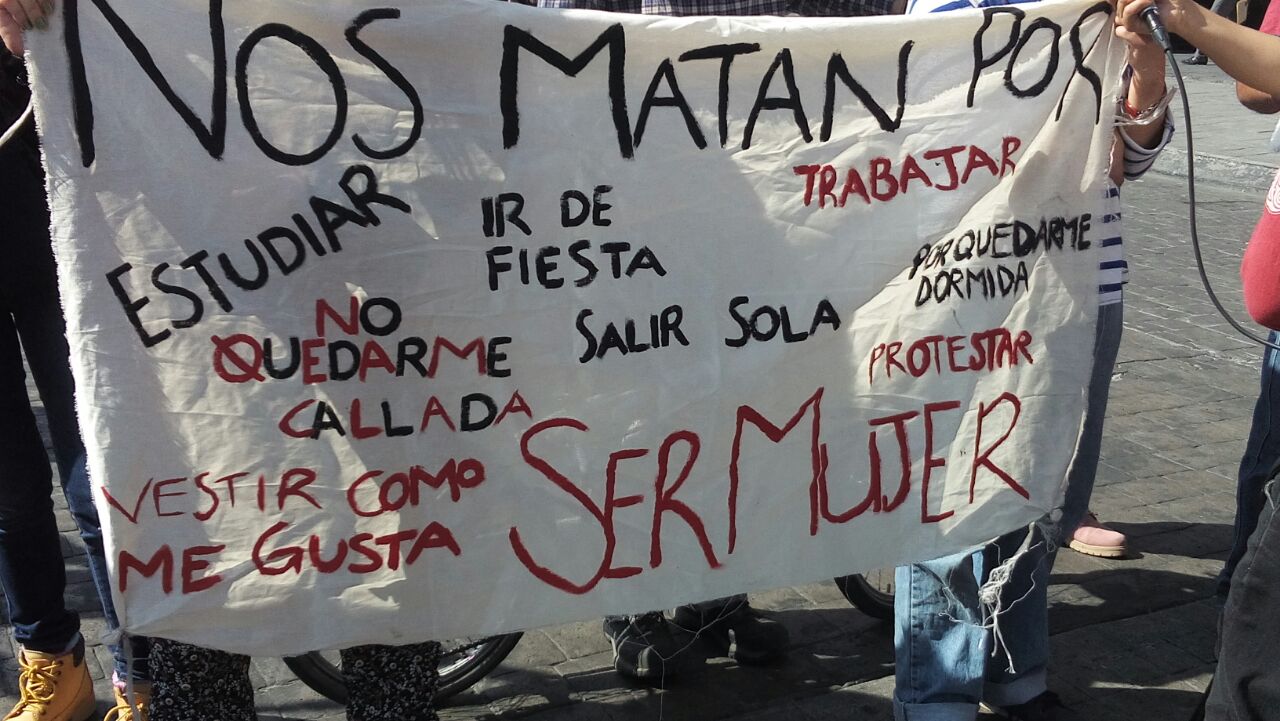 NOS MATAN POR
ESTUDIAR
IR DE
FIESTA
TRABAJAR
POR QUEDARME
DORMIDA
NO
QUEDARME
CALLADA
SALIR SOLA
PROTESTAR
VESTIR COMO
ME GUSTA
SER MUJER